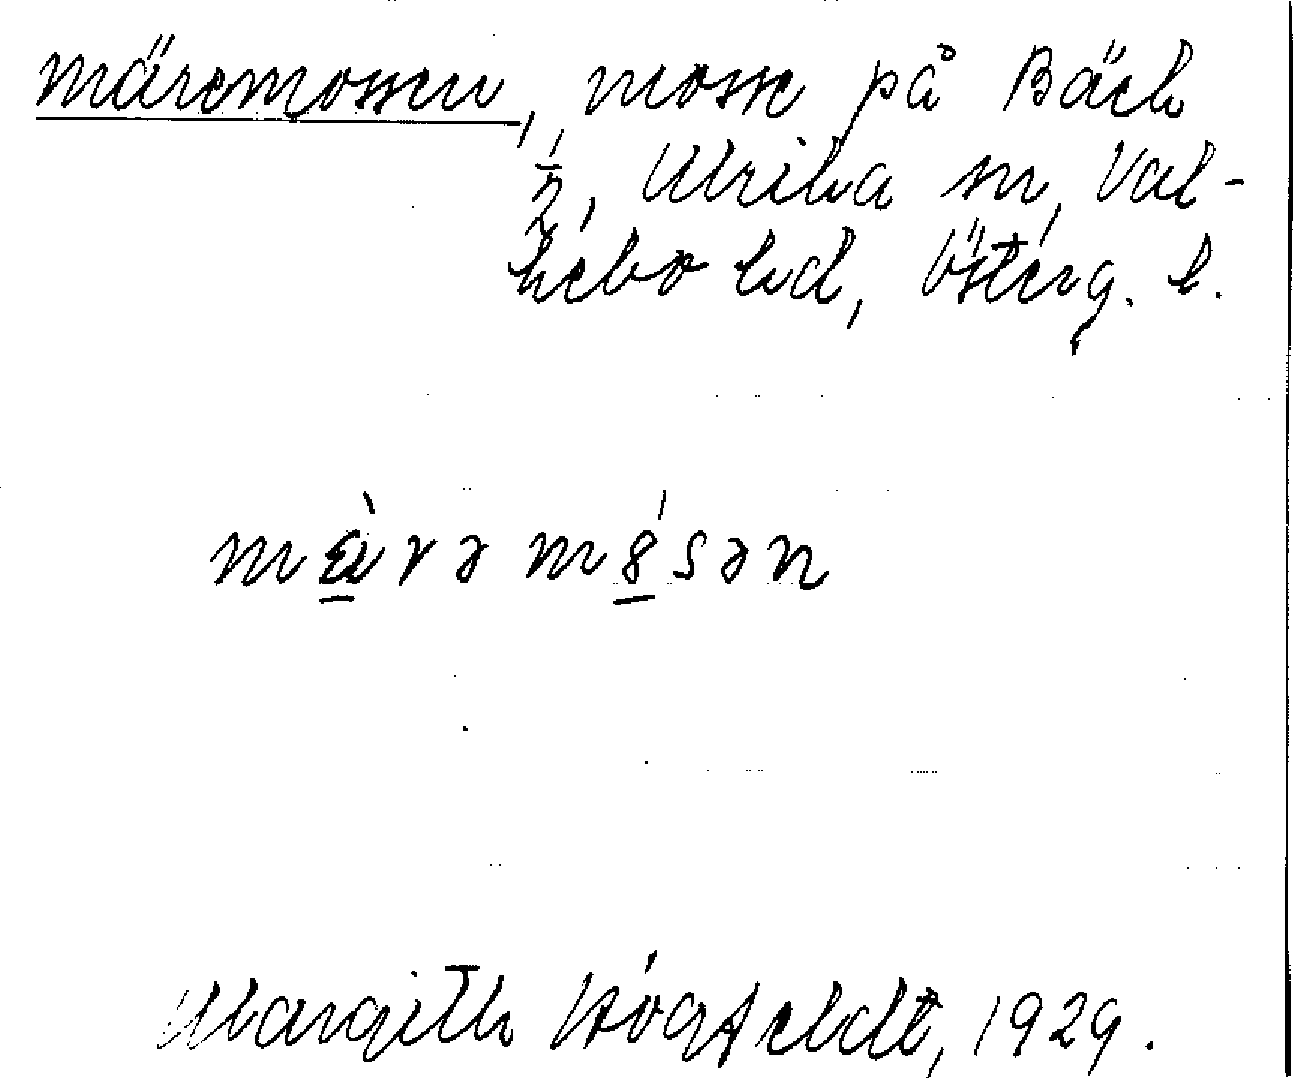 märemossen, mosse på Bäck
1/2, Ulrika sn, Val-
kebo hd, Österg. l.
mɑ̀rə mȣ́sən
Margith Högfeldt, 1929.